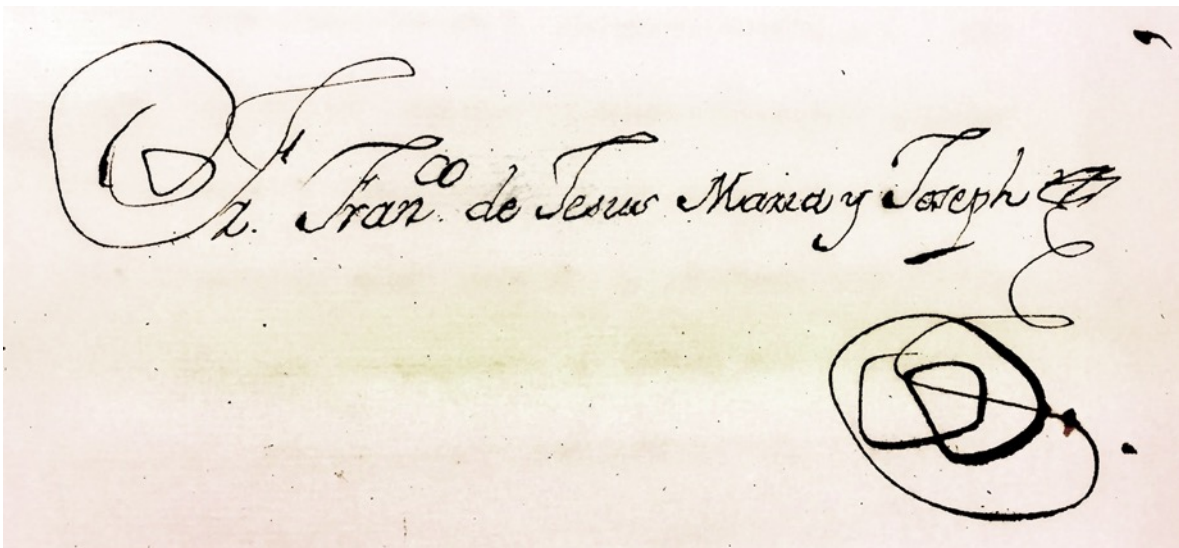 Fr. Fran.co de Jesus Maria y Joseph